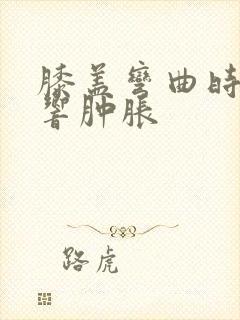 膝盖弯曲时
响肿胀
路虎